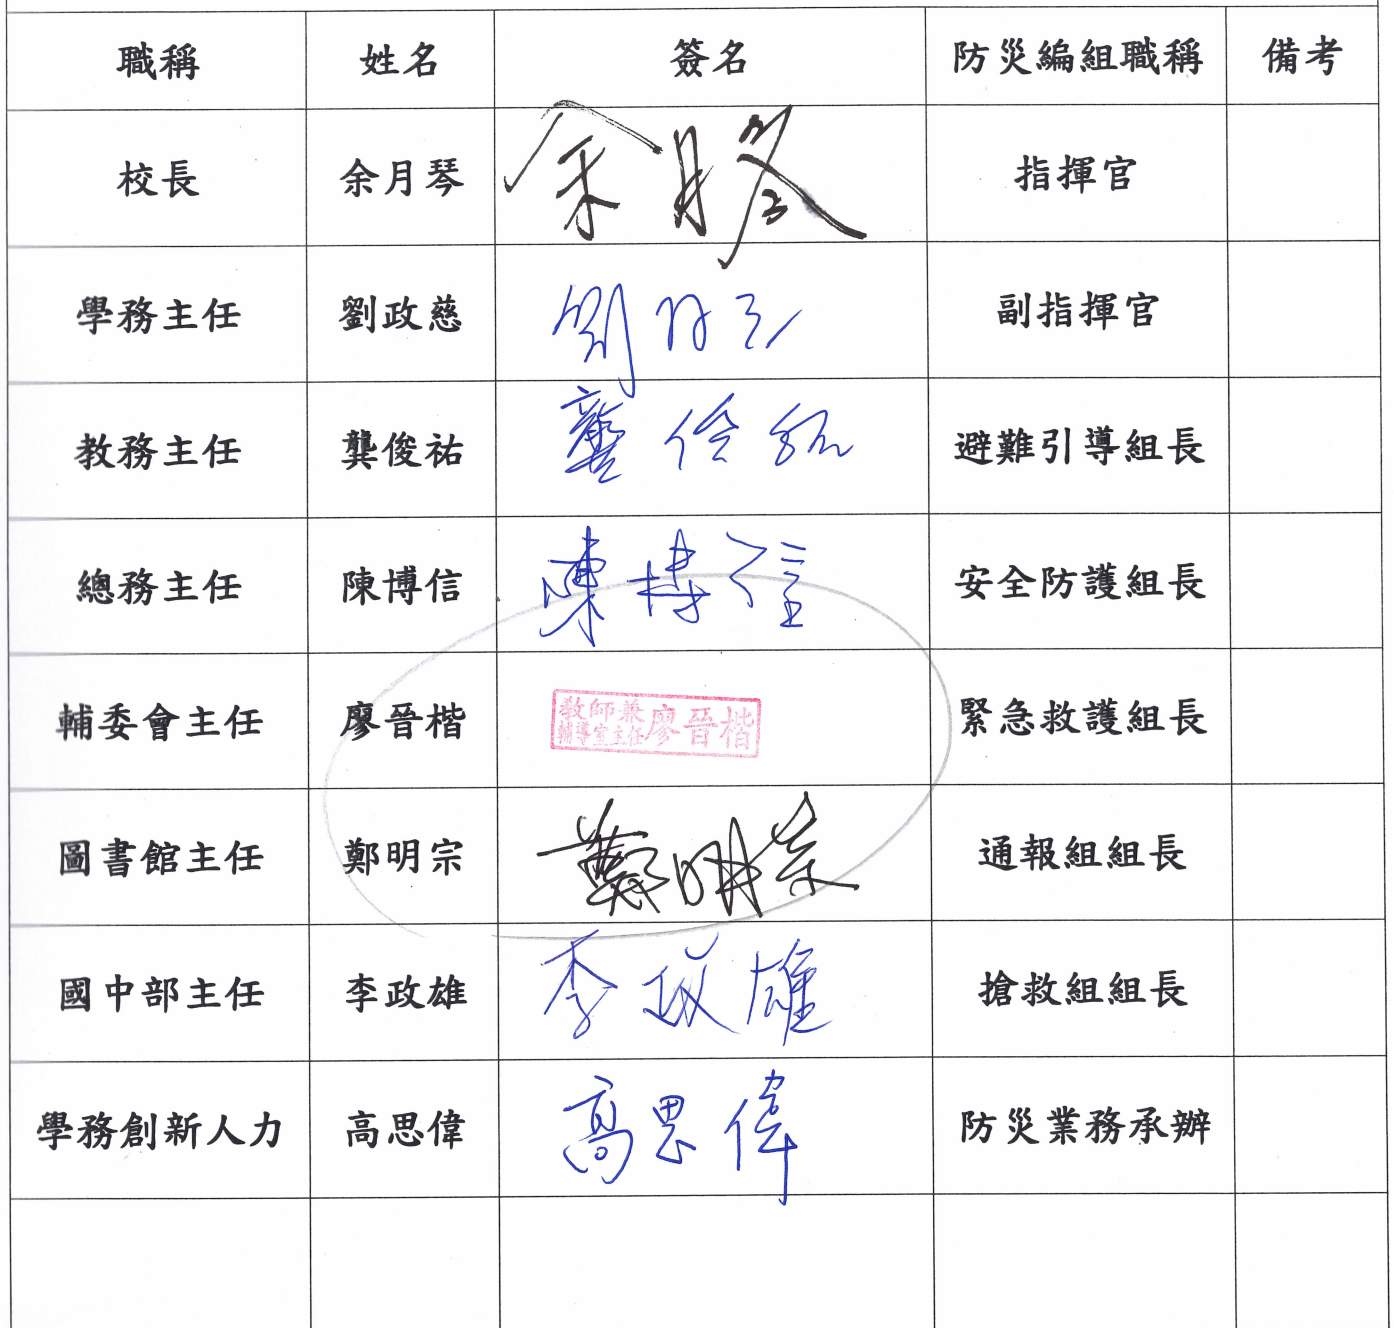 職稱 姓名 簽名 防災編組職稱 備考
校長 余月琴 余月琴 指揮官
學務主任 劉政慈 劉政慈 副指揮官
教務主任 龔俊祐 龔俊祐 避難引導組長
總務主任 陳博信 陳博信 安全防護組長
輔委會主任 廖晉楷 教師兼輔導室主任廖晉楷 緊急救護組長
圖書館主任 鄭明宗 鄭明宗 通報組組長
國中部主任 李政雄 李政雄 搶救組組長
學務創新人力 高思偉 高思偉 防災業務承辦